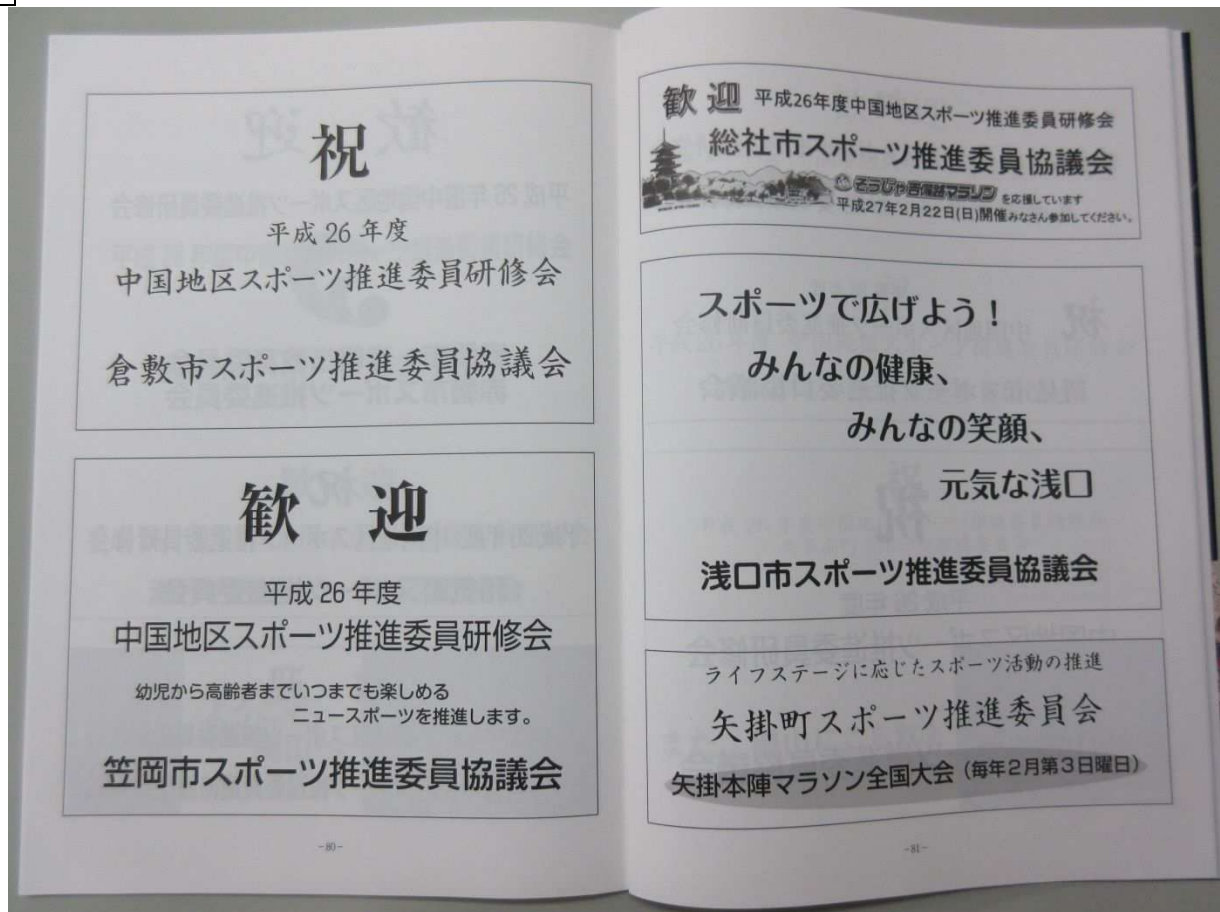 祝
平成 26 年度
中国地区スポーツ推進委員研修会
倉敷市スポーツ推進委員協議会
歓 迎
平成 26 年度
中国地区スポーツ推進委員研修会
幼児から高齢者までいつまでも楽しめる
ニュースポーツを推進します。
笠岡市スポーツ推進委員協議会
-80-
歓 迎 平成26年度中国地区スポーツ推進委員研修会
総社市スポーツ推進委員協議会
そうじゃ吉備路マラソン を応援しています
平成27年2月22日(日)開催 みなさん参加してください。
スポーツで広げよう!
みんなの健康、
みんなの笑顔、
元気な浅口
浅口市スポーツ推進委員協議会
ライフステージに応じたスポーツ活動の推進
矢掛町スポーツ推進委員会
矢掛本陣マラソン全国大会(毎年2月第3日曜日)
-81-